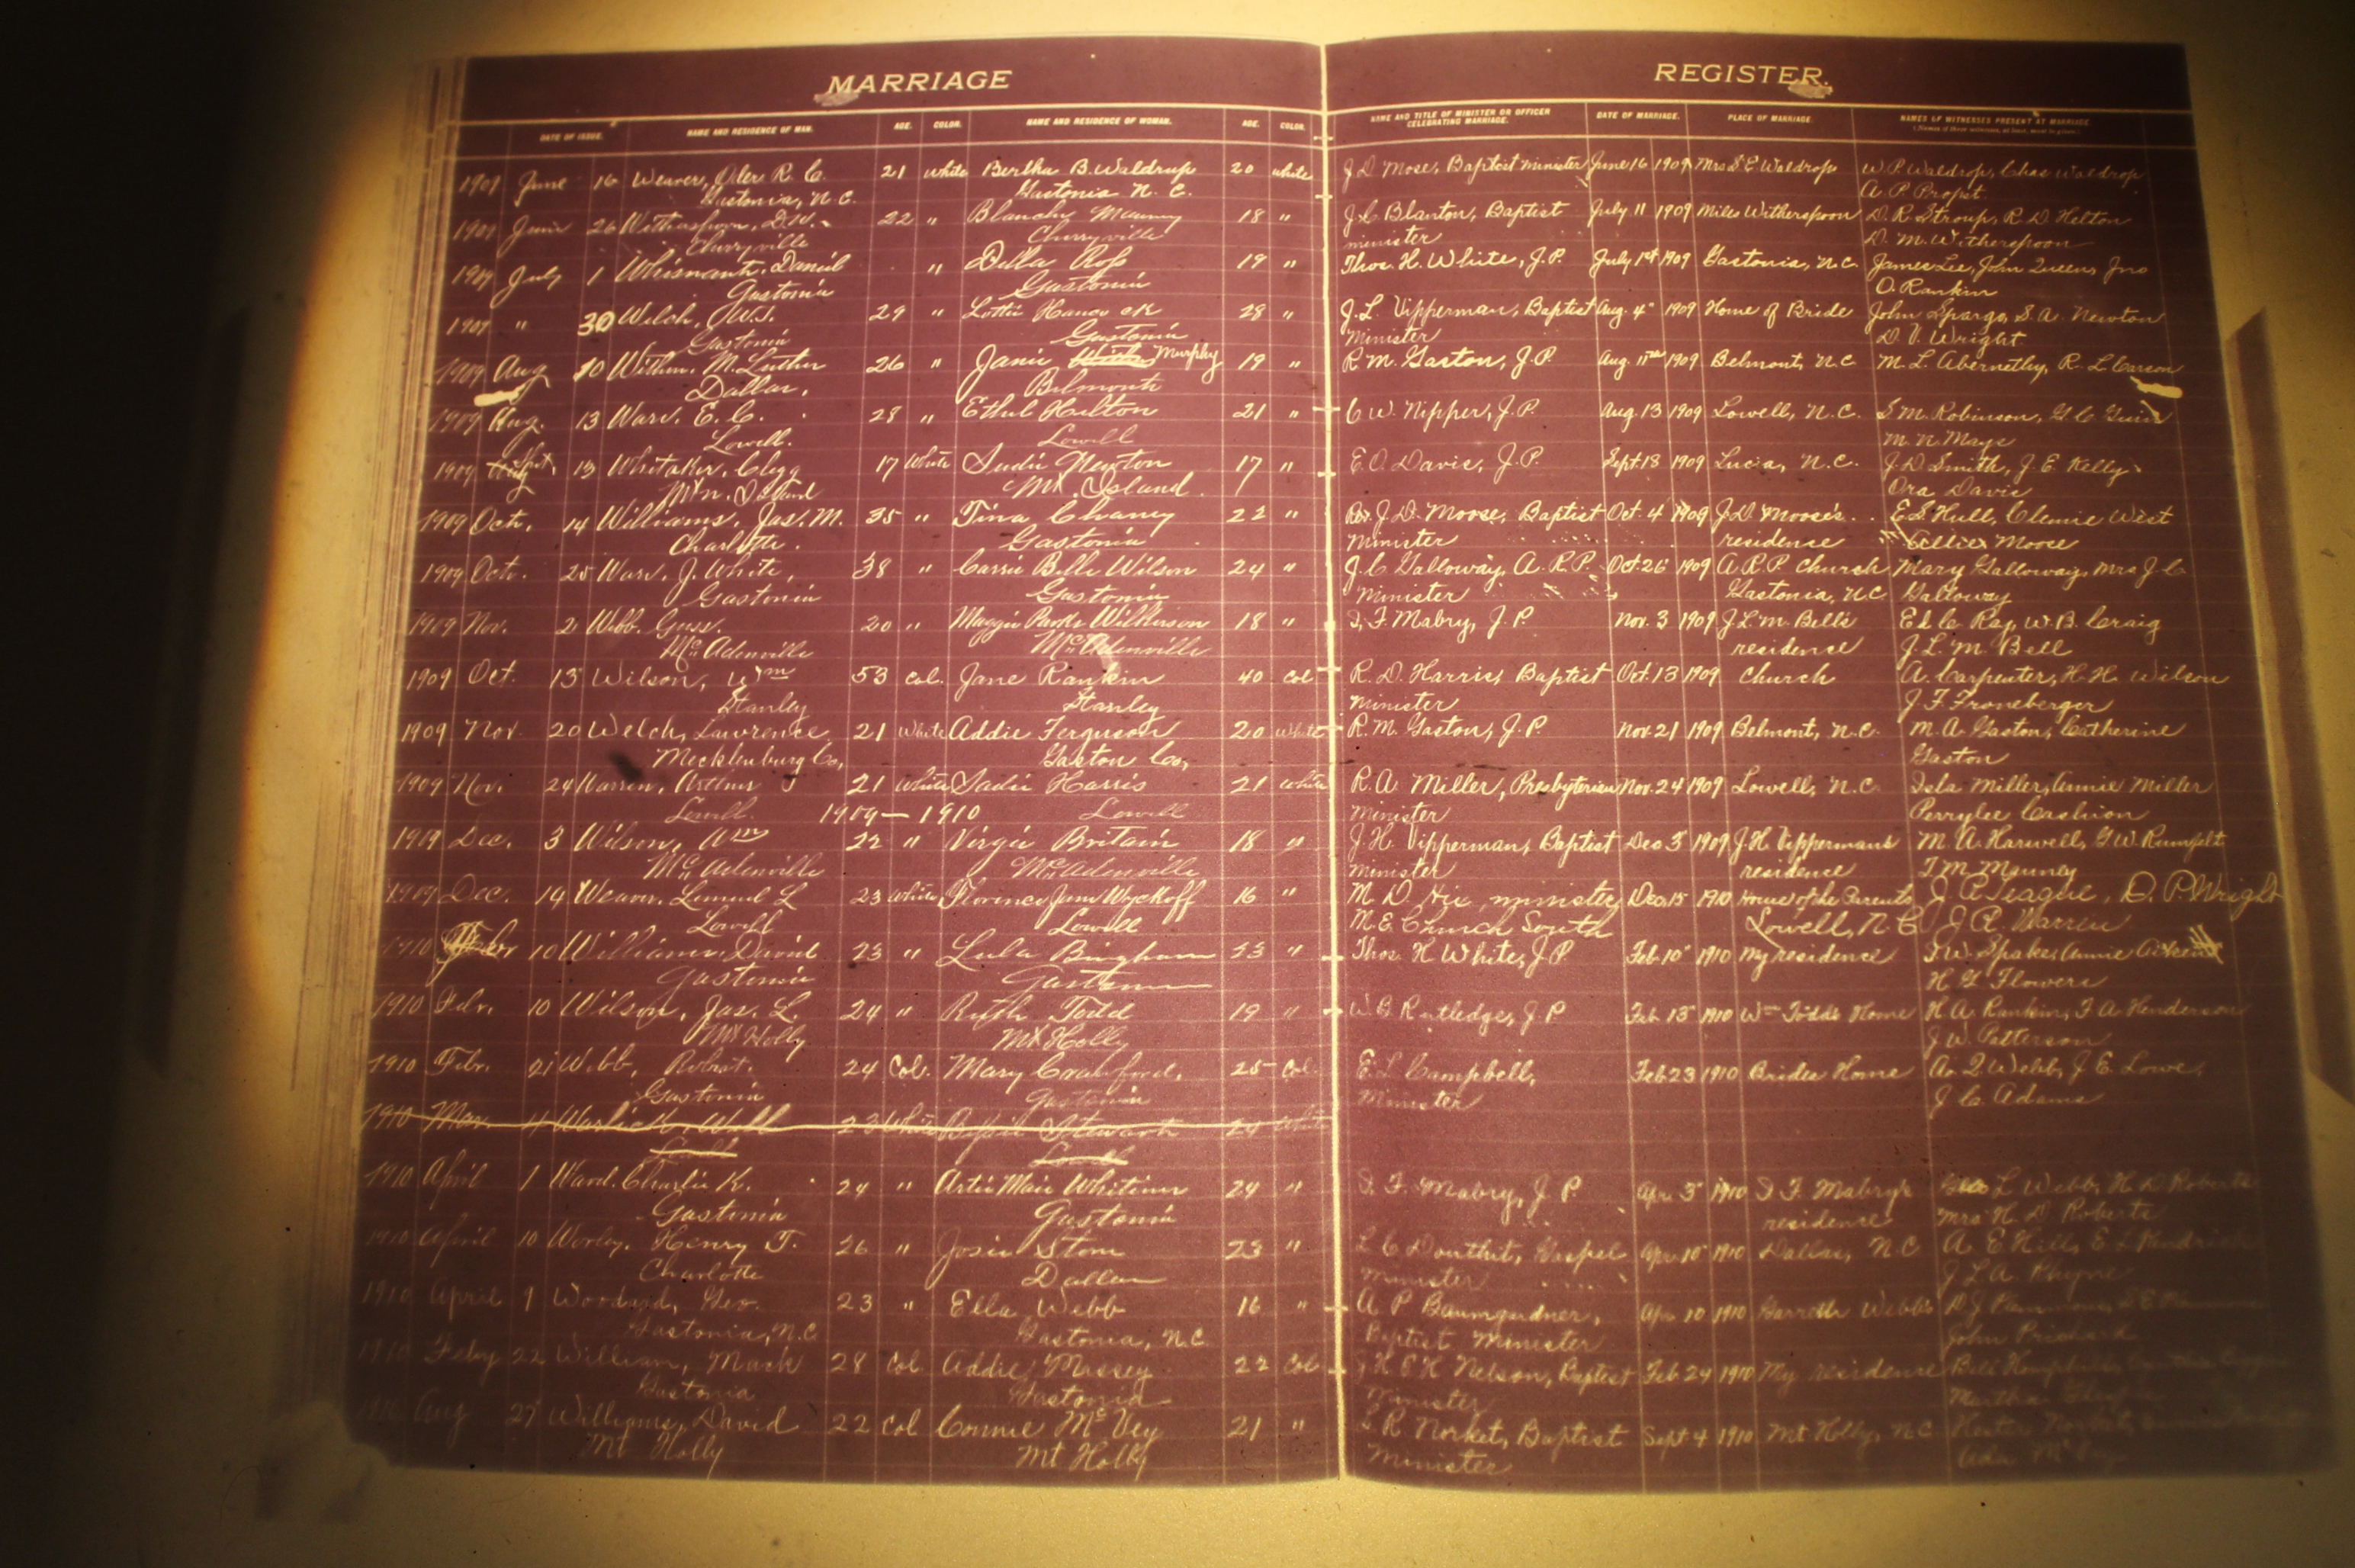 MARRIAGE REGISTER.
DATE OF ISSUE. NAME AND RESIDENCE OF MAN. AGE. COLOR. NAME AND RESIDENCE OF WOMAN. AGE. COLOR. NAME AND TITLE OF MINISTER OR OFFICER CELEBRATING MARRIAGE. DATE OF MARRIAGE. PLACE OF MARRIAGE. NAMES OF WITNESSES PRESENT AT MARRIAGE.
1909 June 16 Weaver, R. C. 21 white Bertha B. Waldrup 20 white J. D. Mose, Baptist minister June 16 1909 Mrs S. E. Waldrop W. P. Waldrop, Chas Waldrop
Gastonia, N.C. Gastonia N. C. A. P. Propst
1909 June 26 Witherspoon, D.W. 22 " Blanch Mauney 18 " J. C. Blanton, Baptist July 11 1909 Miles Witherspoon D. R. Stroup, R. D. Helton
Cherryville Cherryville minister D. M. Witherspoon
1909 July 1 Whisnant, Daniel " Della Ross 19 " Thos. H. White, J.P. July 1st 1909 Gastonia, N.C. James Lee, John Queen, Jno
Gastonia Gastonia O. Rankin
1909 " 30 Welch, W.S. 29 " Lottie Hancock 28 " J. L. Vipperman, Baptist Aug. 4" 1909 Home of Bride John Spargo, S. A. Newton
Gastonia Gastonia Minister D. V. Wright
1909 Aug 10 Withers, M. Luther 26 " Janie Murphy 19 " R M. Gaston, J.P. Aug. 11th 1909 Belmont, N.C M. L. Abernethy, R. L. Carson
Dallas, Belmont
1909 Aug. 13 Ware. E. C. 28 " Ethel Hilton 21 " C W. Nipper, J.P. Aug. 13 1909 Lowell, N.C. S M. Robinson, G. C.
Lowell. Lowell M. N. Mays
1909 Sept, 13 Whitaker, Clegg 17 White Sudie Newton 17 " E. O. Davis, J.P. Sept. 18 1909 Lucia, N.C. J. D Smith, J. E. Kelly
Mtn. Island Mt. Island Ora Davis
1909 Oct. 14 Williams, Jas. M. 35 " Tina Chaney 22 " Rev. J. D. Moose, Baptist Oct. 4 1909 J. D. Moose's E. S. Hull, Clemie West
Charlotte. Gastonia Minister residence Moose
1909 Oct. 25 Ware. J. White, 38 " Carrie Belle Wilson 24 " J. C Galloway, A. R. P. Oct. 26 1909 A R P Church Mary Galloway, Mrs J. C.
Gastonia Gastonia Minister Gastonia, N.C Galloway
1909 Nov. 2 Webb. Guss. 20 " Maggie Parks Wilkinson 18 " I. F. Mabry, J. P Nov. 3 1909 J L M Bell's Ed C Ray, W. B. Craig
McAdenville McAdenville residence J. L. M. Bell
1909 Oct. 13 Wilson, Wm 53 col. Jane Rankin 40 col R. D. Harris, Baptist Oct. 13 1909 Church A. Carpenter, H. H. Wilson
Stanley Stanley minister J F. Froneberger
1909 Nov. 20 Welch, Lawrence 21 White Addie Ferguson 20 White R. M. Gaston, J. P. Nov. 21 1909 Belmont, N.C. M. A. Gaston, Catherine
Mecklenburg Co, Gaston Co, Gaston
1909 Nov. 24 Warren, Arthur 21 White Sadie Harris 21 white R. A. Miller, Presbyterian Nov. 24 1909 Lowell, N.C. Isla Miller, Annie Miller
Lowell. 1909—1910 Lowell Minister Perrylee Cashion
1909 Dec. 3 Wilson, Wm 22 " Virgie Britain 18 " J. H. Vipperman, Baptist Dec 3 1909 J. H. Vipperman's M. A. Harwell, G. W. Rumfelt
McAdenville McAdenville minister residence T. M. Mauney
1909 Dec. 14 Weaver. Lemuel L 23 White Florence Jane Wyckoff 16 " M. D. minister Dec 15 1910 House of the Parents J. P. Teague, D. P. Wright
Lowell Lowell M. E. Church South Lowell, N. C J. A. Warren
1910 10 Williams, David 23 " Lula Bingham 23 " Thos. H White, J P. Feb 10" 1910 My residence T. W. Spake, Annie
Gastonia Gastonia H. Flowers
1910 Febr. 10 Wilson, Jas. L. 24 " Ruth Todd 19 " W. B Rutledge, J P Feb. 15" 1910 Wm Todds Home H A. Rankin, F. A. Henderson
Mt Holly Mt Holly J. W. Patterson
1910 Febr. 21 Webb, Robert. 24 Col. Mary Crawford, 25 Col. E. L. Campbell, Feb 23 1910 Brides Home A. Q Webb, J. E. Lowe,
Gastonia Gastonia Minister J. C. Adams
1910 Mar 4 Warlick, Will 23 White Stewart 24 White
Lowell Lowell
1910 April 1 Ward. Charlie K. 24 " Artie Maie 24 " I. F. Mabry, J P. Apr. 3" 1910 I F. Mabry's L Webb, H D Roberts
Gastonia Gastonia residence Mrs H. D Roberts
1910 April 10 Worley, Henry T. 26 " Josie Stone 23 " L C Douthit, Gospel Apr. 10" 1910 Dallas, N.C A. E Hill,
Charlotte Dallas Minister J L A. Rhyne
1910 April 9 Woodard, Geo. 23 " Ella Webb 16 " A P Baumgardner, Apr 10 1910 Webb's
Gastonia, N.C Gastonia, N.C. Baptist Minister John
1910 Feby 22 William, Mack 28 Col Addie Massey 22 Col H. Nelson, Baptist Feb 24 1910 My residence Bell
Gastonia Gastonia Minister Martha
1910 Aug 27 Williams, David 22 Col Connie McVey 21 " R Norket, Baptist Sept 4 1910 Mt Holly, N.C.
Mt Holly Mt Holly Minister Ada